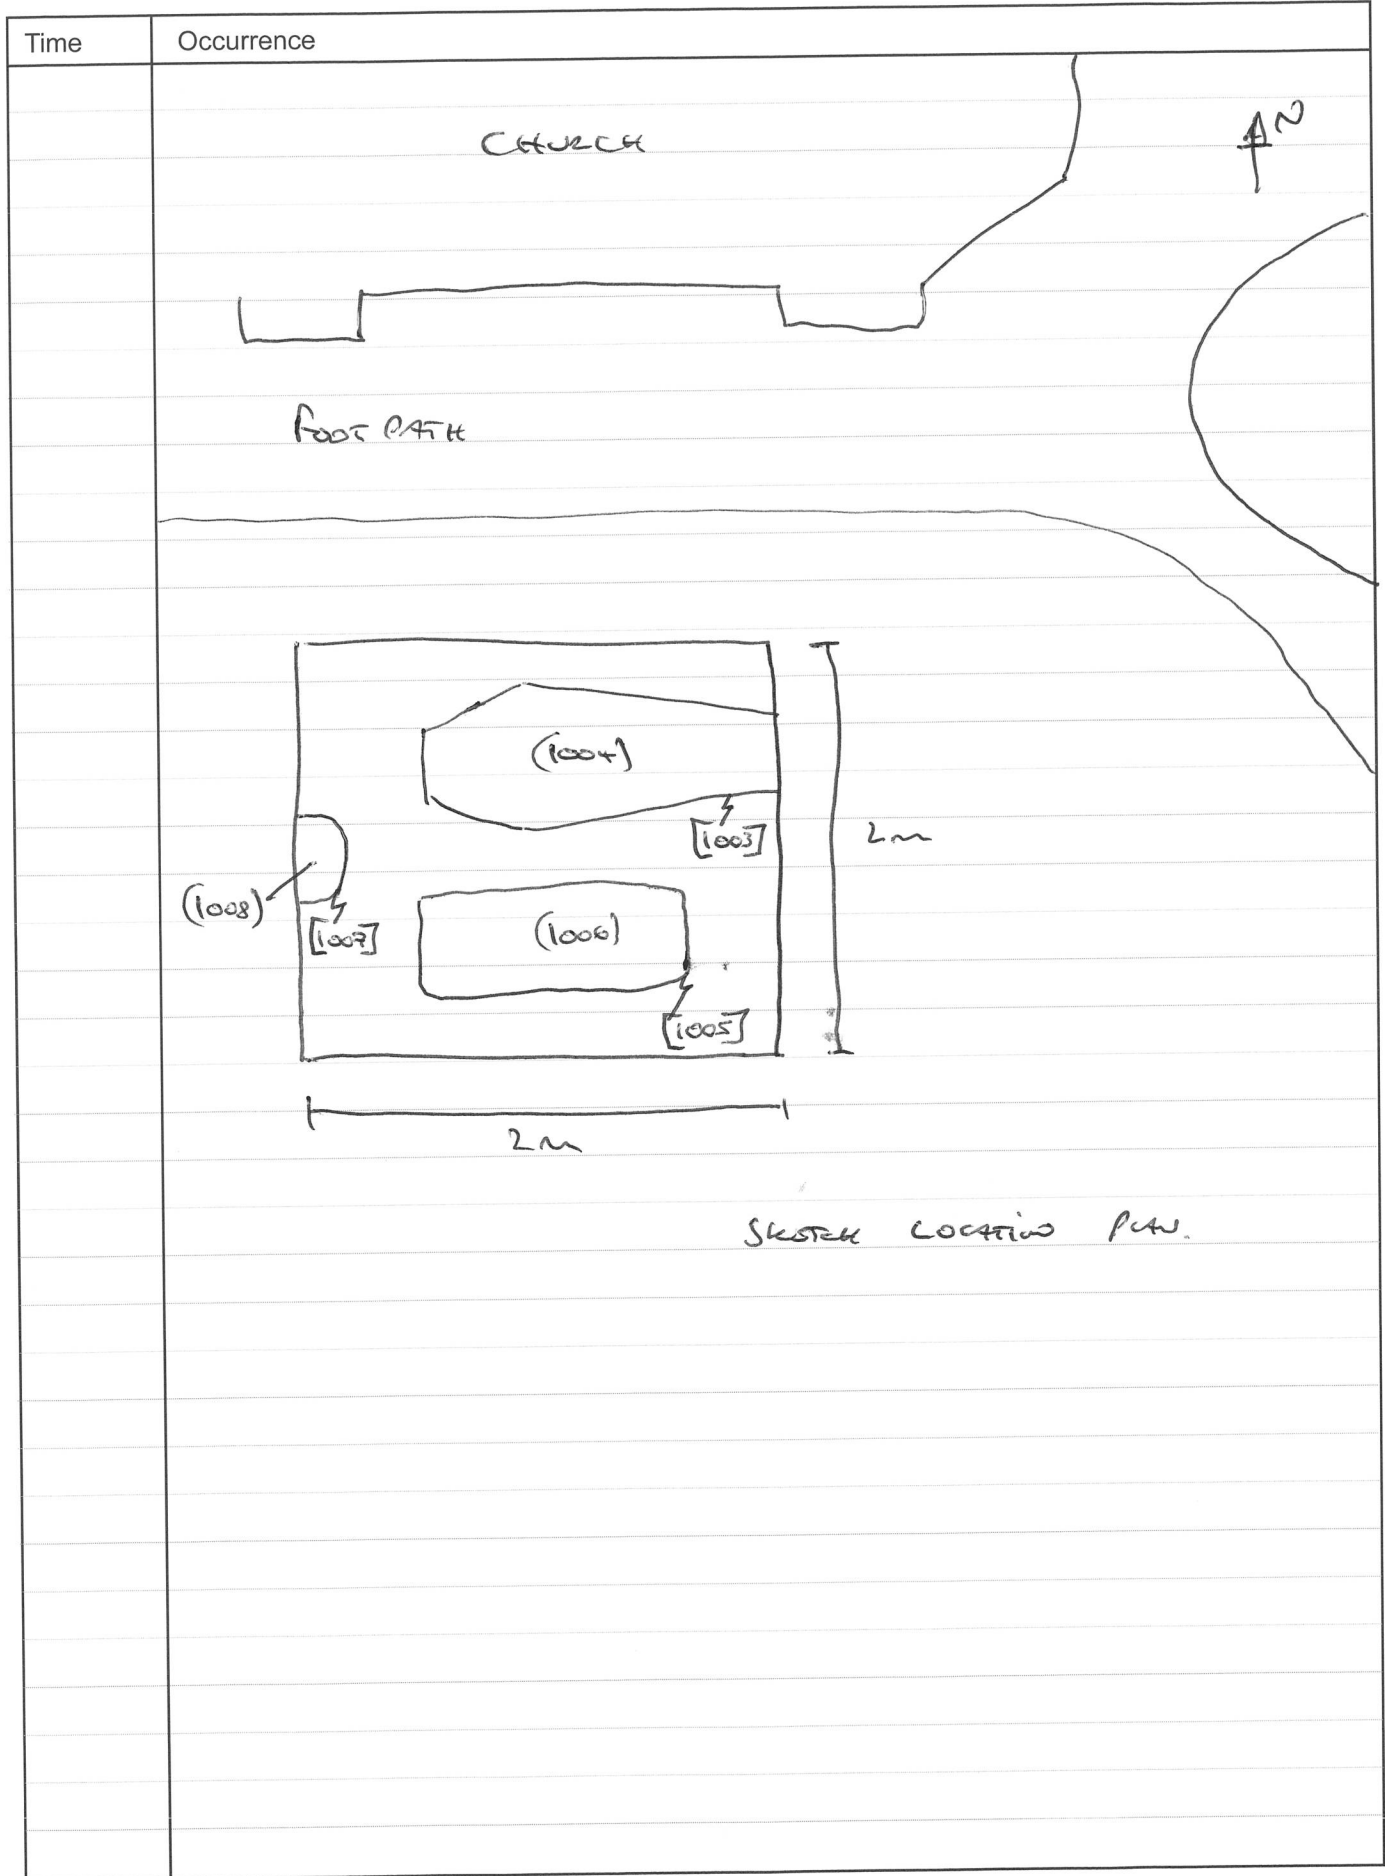 Time Occurrence
CHURCH
N
FOOT PATH
(1004)
[1003]
2m
(1008)
[1007]
(1006)
[1005]
2m
SKETCH LOCATION PLAN.